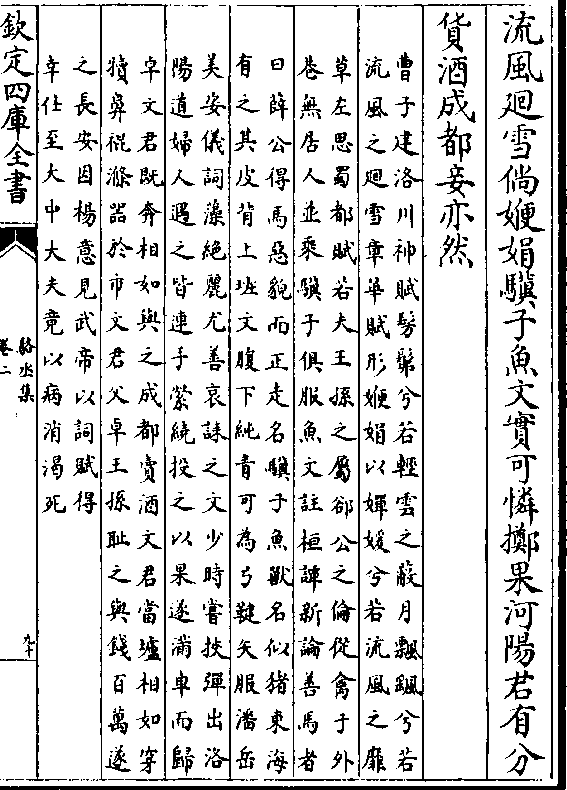 流風廻雪倘㛹娟驥子魚文實可憐擲果河陽君有分
貨酒成都妾亦然
曹子建洛川神賦髣髴兮若輕雲之蔽月飄颻兮若
流風之廻雪章華賦形㛹娟以嬋媛兮若流風之靡
草左思蜀都賦若夫王孫之屬郤公之倫從禽于外
巷無居人並乘驥子俱服魚文註桓譚新論善馬者
曰薛公得馬惡貌而正走名驥子魚獸名似猪東海
有之其皮背上班文腹下純青可為弓鞬矢服潘岳
美姿儀詞藻絶麗尤善哀誄之文少時嘗挾彈出洛
陽道婦人遇之皆連手縈繞投之以果遂滿車而歸
卓文君既奔相如與之成都賣酒文君當壚相如穿
犢鼻裩滌器於市文君父卓王孫耻之與錢百萬遂
之長安因楊意見武帝以詞賦得
幸仕至大中大夫竟以病消渴死
欽定四庫全書
駱丞集
卷二
九十